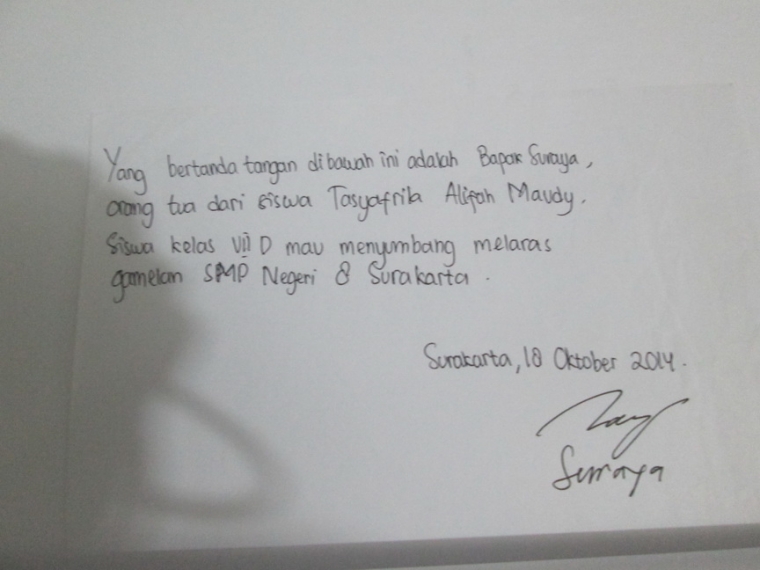 Yang bertanda tangan dibawah ini adalah Bapak Suraya,
orang tua dari siswa Tasyafrila Alifah Maudy.
Siswa kelas VII D mau menyumbang melaras
gamelan SMP Negeri 8 Surakarta.
Surakarta, 18 Oktober 2014.
Suraya